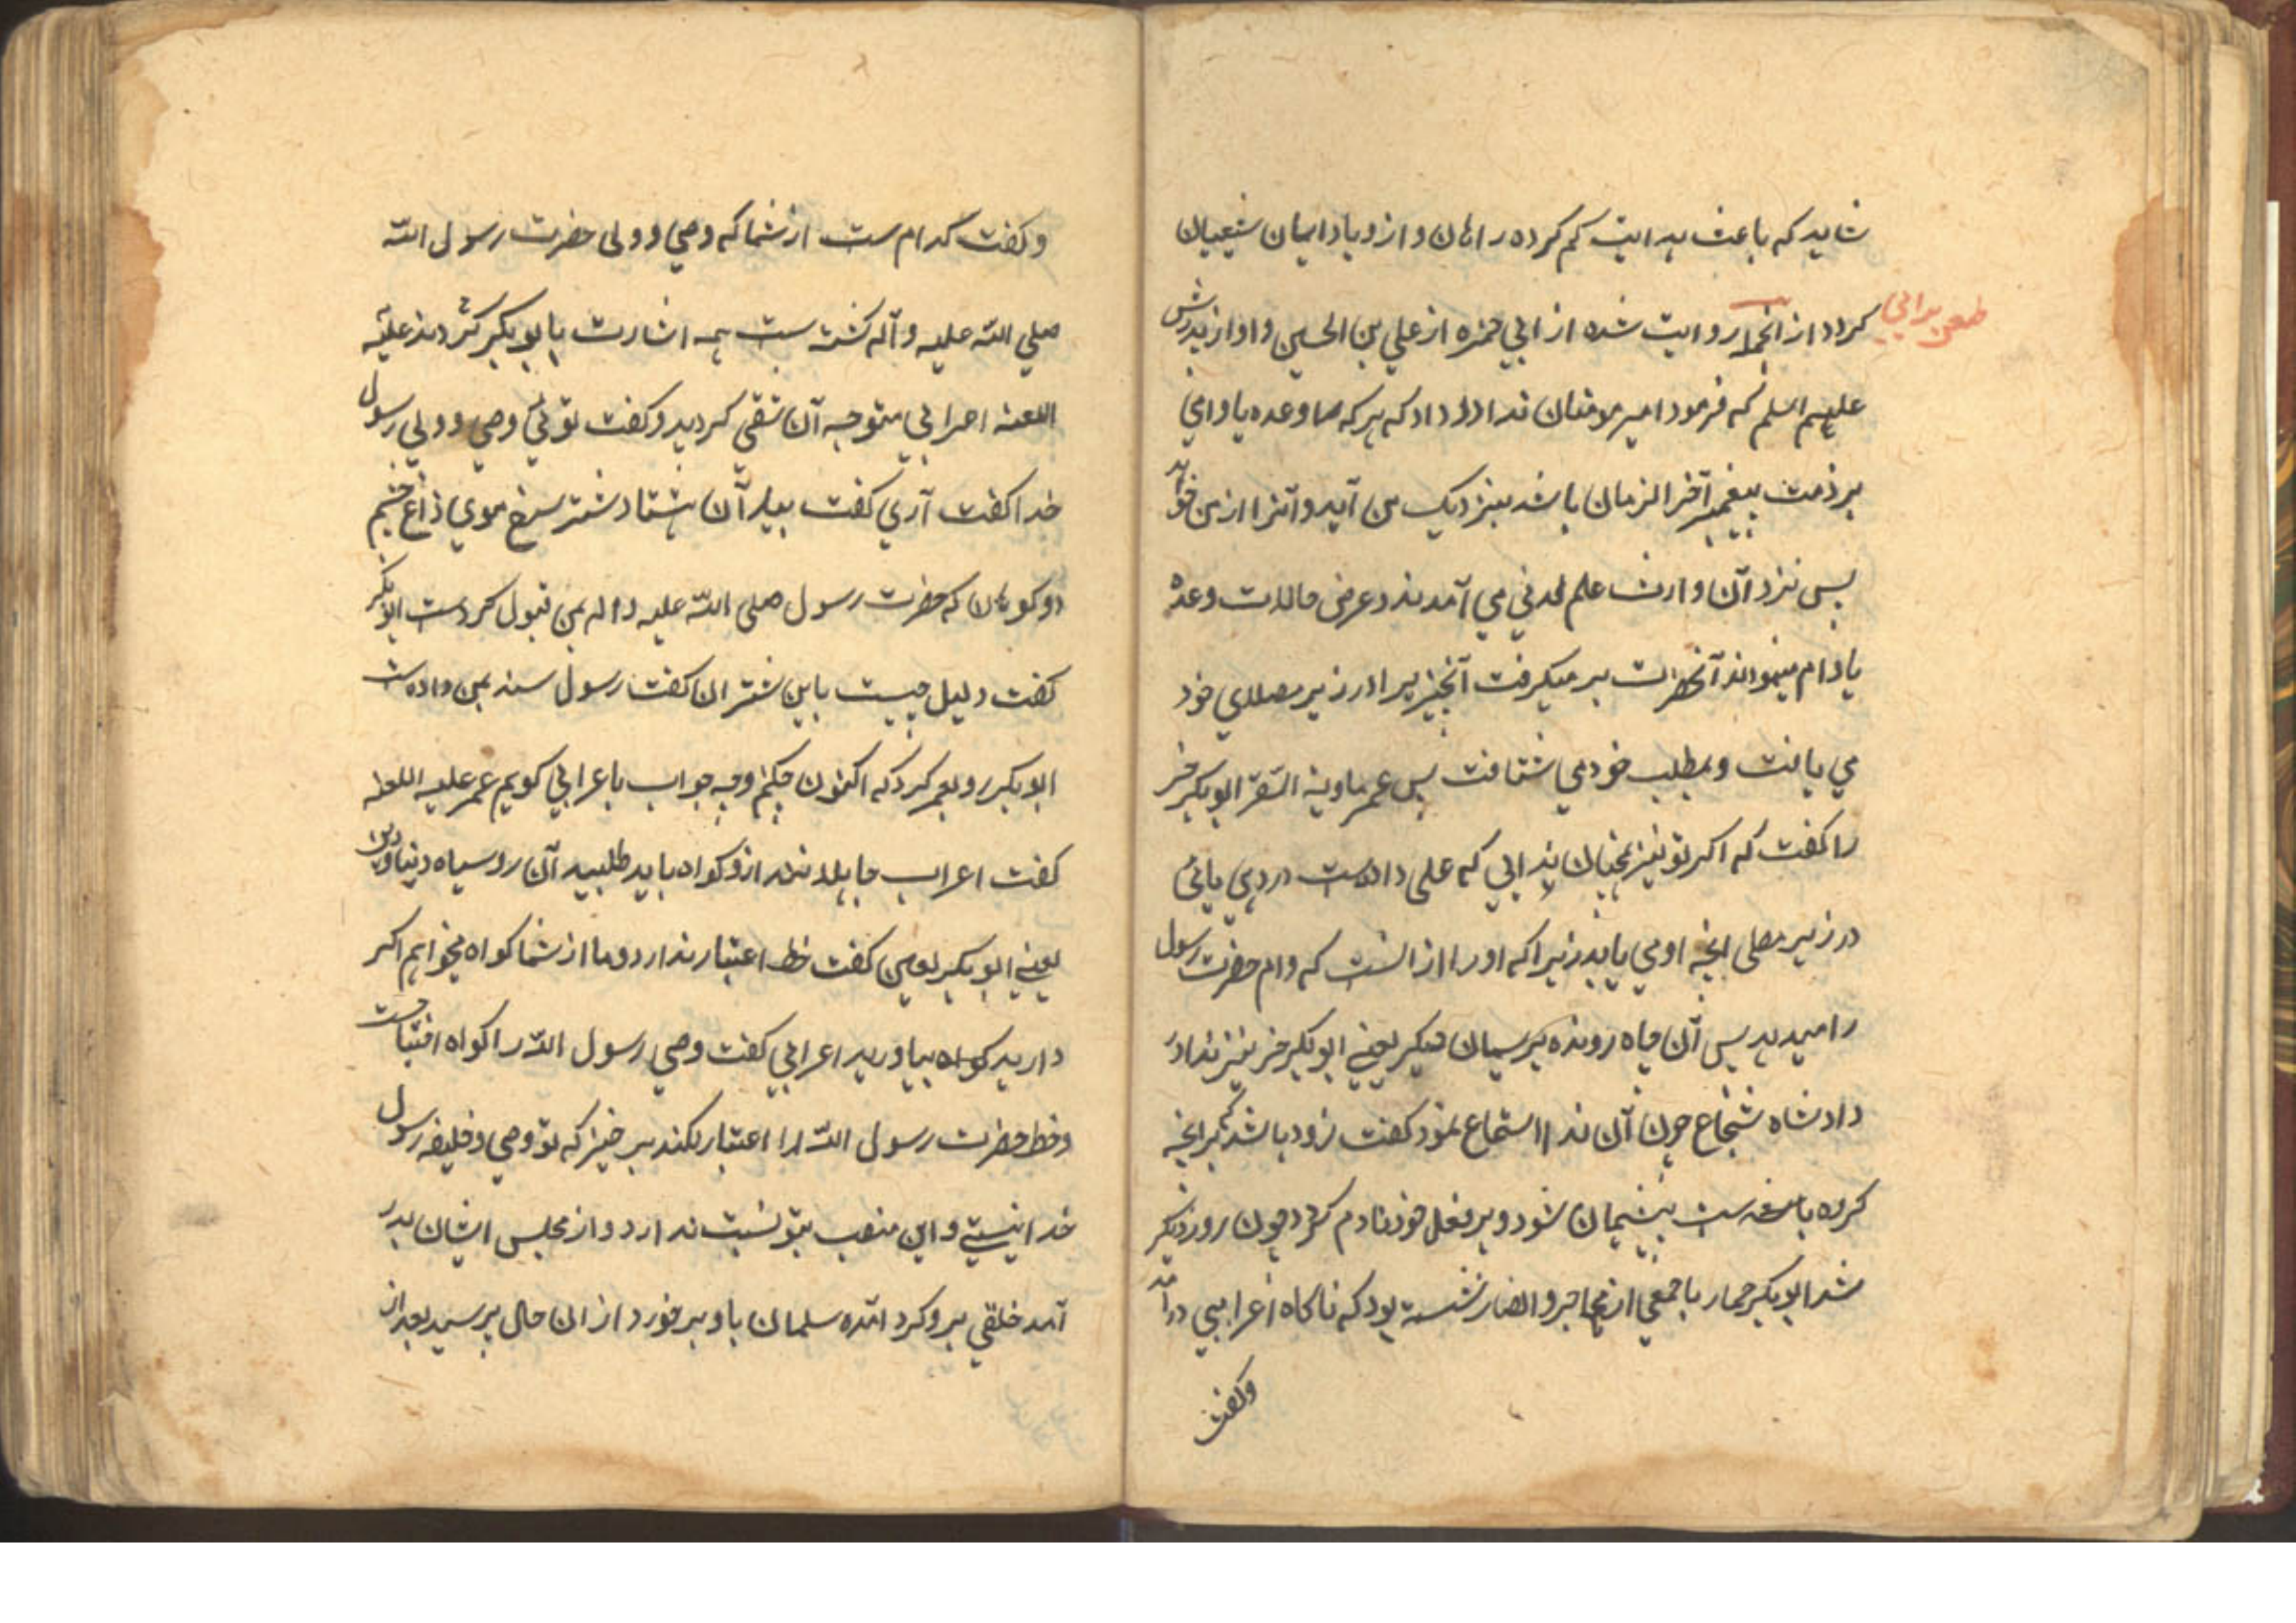 شاید که باعث هدایت کم کرده راهان و ازدیاد ایمان شیعیان
طعن بدانی
کردد از انجمله روایت شده از ابی حمزه از علی بن الحسین و او از پدرش
علیهم السلم که فرمود امیر مومنان ندا در داد که هر که را وعده یا وامی
بر ذمت پیغمبر آخر الزمان باشد بنزدیک من آید و آنرا از من خواهد
پس نزد آن وارث علم لدنی می آمدند و عرض حالات وعده
یا وام مینمودند آنحضرت بر میکرفت آنچیز را در زیر مصلای خود
می یافت و بمطلب خود می شتافت پس عمر ابوبکر خر
را کفت که اکر تو نیز همچنان ندایی که علی داده است در دهی یابی
در زیر مصلی انچه او می یابد زیرا که او را از انست که وام حضرت رسول
را میدهد پس آن بریسمان یعنی ابوبکر خر نیز ندا در
داد شاه شجاع چون آن ندا استماع نمود کفت زود باشد که بر انچه
کرده است پشیمان شود و بر فعل خود نادم کردد چون روز دیکر
شد ابوبکر حمار با جمعی از مهاجر و انصار نشسته بود که ناکاه اعرابیی درآمد
وکفت
و کفت کدام ست از شما که وصی و ولی حضرت رسول الله
صلی الله علیه و آله کشته ست همه اشارت بابوبکر کردند علیه
اللعنه اعرابی متوجه آن شقی کردید و کفت توئی وصی و ولی رسول
خدا کفت آری کفت بیار آن هشتاد شتر سرخ موی زاغ چشم
دو کوهان که حضرت رسول صلی الله علیه و اله بمن قبول کردست ابوبکر
کفت دلیل چیست باین شتران کفت رسول سند بمن داده است
ابوبکر رو بعمر کرد که اکنون چکنم و چه جواب باعرابی کویم عمر علیه اللعنه
کفت اعراب جاهلانند ازو کواه باید طلبید آن روسیاه دنیا و دین
یعنی ابوبکر لعین کفت خط اعتبار ندارد و ما از شما کواه میخواهیم اکر
دارید کواه بیاورید اعرابی کفت وصی رسول الله را کواه احتیاجست
و خط حضرت رسول الله را اعتبار نکند بر خیز که تو وصی و خلیفه رسول
خدا نیستی و این منصب بتو نسبت ندارد و از مجلس ایشان بدر
آمد خلقی برو کرد آمده سلمان باو بر خورد از ان حال پرسید بعد از